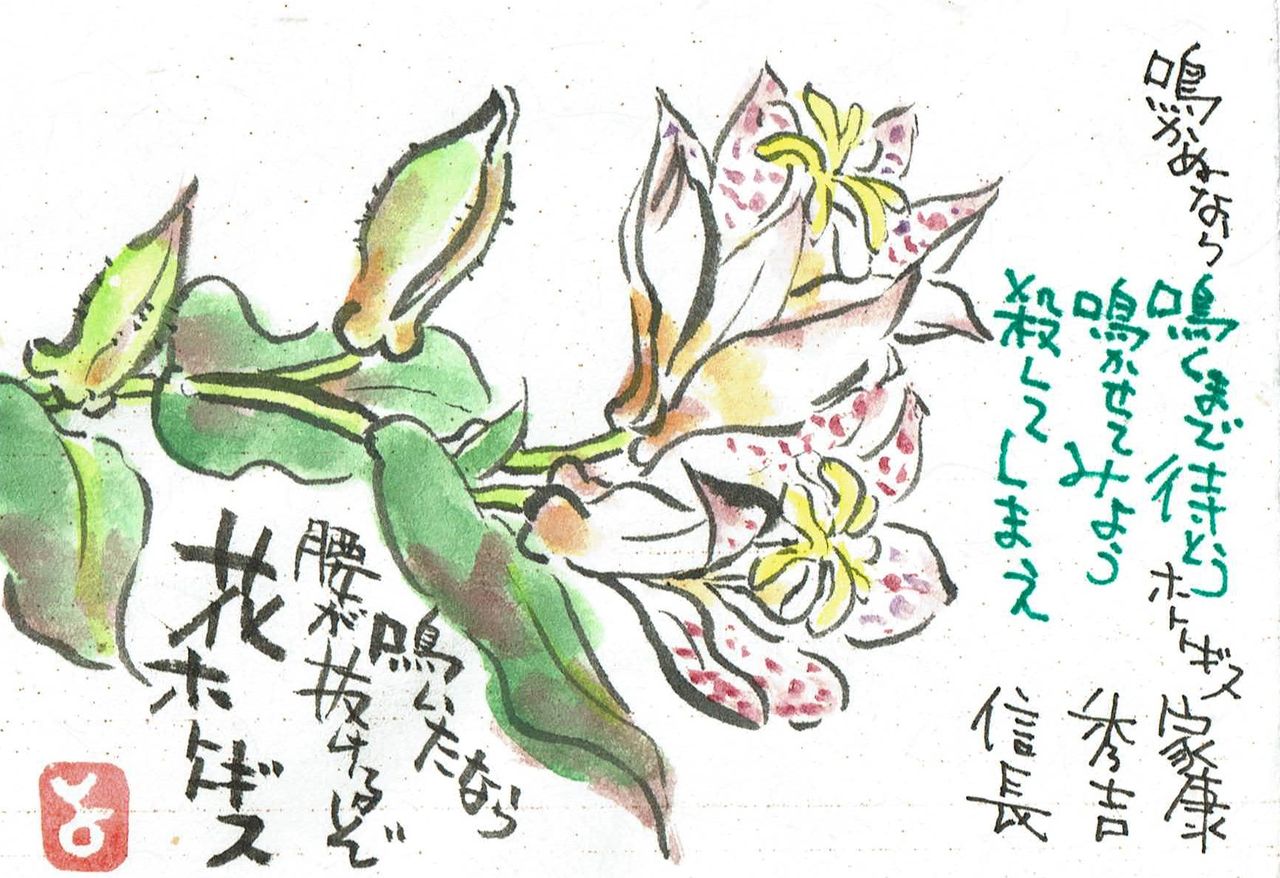 鳴かぬなら
鳴くまで待とう
ホトトギス
家康
鳴かせてみよう
秀吉
殺してしまえ
信長
鳴いたなら
腰が抜けるぞ
花ホトトギス